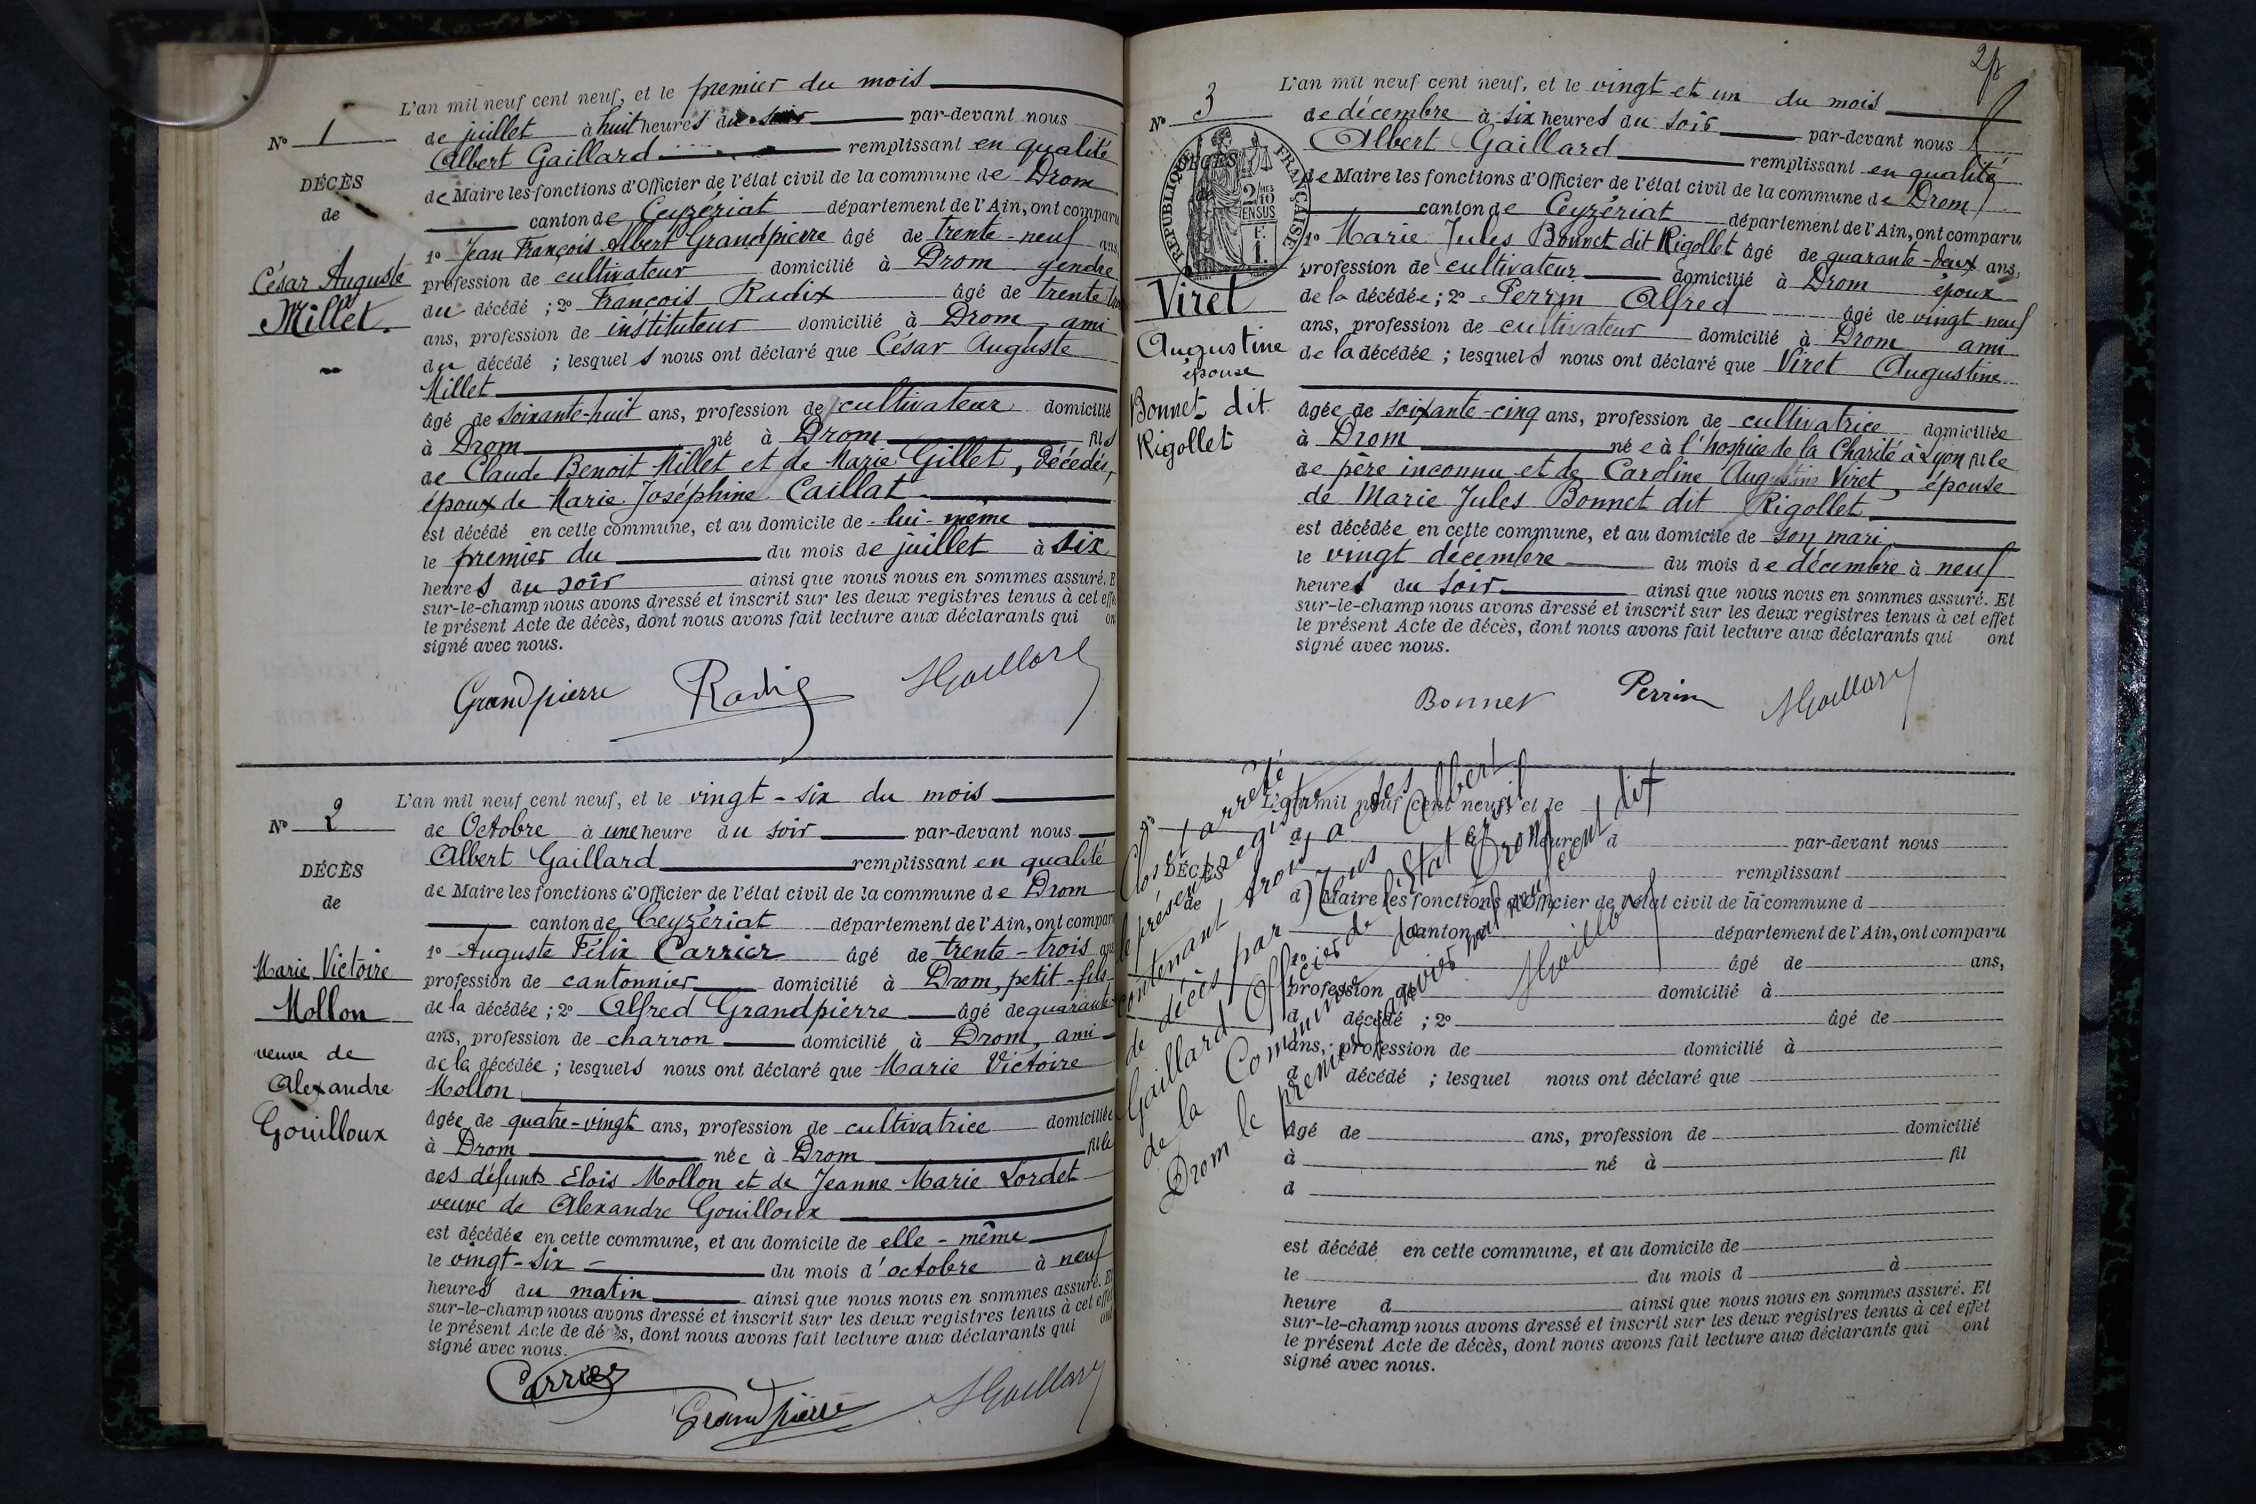 N° 1
DÉCÈS
de
César Auguste
Millet.
L'an mil neuf cent neuf, et le premier du mois
de juillet à huit heures du soir par-devant nous
Albert Gaillard remplissant en qualité
de Maire les fonctions d'Officier de l'état civil de la commune de Drom
canton de Ceyzériat département de l'Ain, ont comparu
1° Jean François Albert Grandpierre âgé de trente-neuf ans,
profession de cultivateur domicilié à Drom gendre
du décédé ; 2° François Radix âgé de trente
ans, profession de instituteur domicilié à Drom, ami
du décédé ; lesquels nous ont déclaré que César Auguste
Millet
âgé de soixante-huit ans, profession de cultivateur domicilié
à Drom né à Drom fils
de Claude Benoit Millet et de Marie Gillet, décédés,
époux de Marie Joséphine Caillat
est décédé en cette commune, et au domicile de lui-même
le premier du du mois de juillet à six
heures du soir ainsi que nous nous en sommes assuré. E
sur-le-champ nous avons dressé et inscrit sur les deux registres tenus à cet effe
le présent Acte de décès, dont nous avons fait lecture aux déclarants qui on
signé avec nous.
Grandpierre Radix AGaillard
N° 2
DÉCÈS
de
Marie Victoire
Mollon
veuve de
Alexandre
Gouilloux
L'an mil neuf cent neuf, et le vingt-six du mois
de Octobre à une heure du soir par-devant nous
Albert Gaillard remplissant en qualité
de Maire les fonctions d'Officier de l'état civil de la commune de Drom
canton de Ceyzériat département de l'Ain, ont compar
1° Auguste Félix Carrier âgé de trente-trois ans
profession de cantonnier domicilié à Drom, petit-fils
de la décédée ; 2° Alfred Grandpierre âgé de quarante
ans, profession de charron domicilié à Drom, ami
de la décédée ; lesquels nous ont déclaré que Marie Victoire
Mollon
âgée de quatre-vingt ans, profession de cultivatrice domiciliée
à Drom née à Drom fille
des défunts Elois Mollon et de Jeanne Marie Lordet
veuve de Alexandre Gouilloux
est décédée en cette commune, et au domicile de elle-même
le vingt-six du mois d'octobre à neuf
heures du matin ainsi que nous nous en sommes assuré. Et
sur-le-champ nous avons dressé et inscrit sur les deux registres tenus à cet effet
le présent Acte de décès, dont nous avons fait lecture aux déclarants qui ont
signé avec nous.
Carrier
Grandpierre AGaillard
N° 3
DÉCÈS
de
RÉPUBLIQUE FRANÇAISE
2/10 EN SUS
F.
1.
Viret
Augustine
épouse
Bonnet dit
Rigollet
L'an mil neuf cent neuf, et le vingt et un du mois
de décembre à six heures du soir par-devant nous
Albert Gaillard remplissant en qualité
de Maire les fonctions d'Officier de l'état civil de la commune de Drom
canton de Ceyzériat département de l'Ain, ont comparu
1° Marie Jules Bonnet dit Rigollet âgé de quarante-deux ans,
profession de cultivateur domicilié à Drom époux
de la décédée ; 2° Perrin Alfred âgé de vingt neuf
ans, profession de cultivateur domicilié à Drom ami
de la décédée ; lesquels nous ont déclaré que Viret Augustine
âgée de soixante-cinq ans, profession de cultivatrice domiciliée
à Drom née à l'hospice de la Charité à Lyon fille
de père inconnu et de Caroline Augustine Viret, épouse
de Marie Jules Bonnet dit Rigollet
est décédée en cette commune, et au domicile de son mari
le vingt décembre du mois de décembre à neuf
heures du soir ainsi que nous nous en sommes assuré. Et
sur-le-champ nous avons dressé et inscrit sur les deux registres tenus à cet effet
le présent Acte de décès, dont nous avons fait lecture aux déclarants qui ont
signé avec nous.
Bonnet Perrin AGaillard
Clos et arrêté
le présent registre
contenant trois actes
de décès par nous Albert
Gaillard Officier de l'Etat civil
de la Commune de Drom
Drom le premier janvier mil neuf cent dix
AGaillard
N°
DÉCÈS
de
L'an mil neuf cent neuf, et le
d à heure d par-devant nous
remplissant
d Maire les fonctions d'Officier de l'état civil de la commune d
canton d département de l'Ain, ont comparu
1° âgé de ans,
profession de domicilié à
d décédé ; 2° âgé de
ans, profession de domicilié à
d décédé ; lesquel nous ont déclaré que
âgé de ans, profession de domicilié
à né à fil
d
est décédé en cette commune, et au domicile de
le du mois d à
heure d ainsi que nous nous en sommes assuré. Et
sur-le-champ nous avons dressé et inscrit sur les deux registres tenus à cet effet
le présent Acte de décès, dont nous avons fait lecture aux déclarants qui ont
signé avec nous.